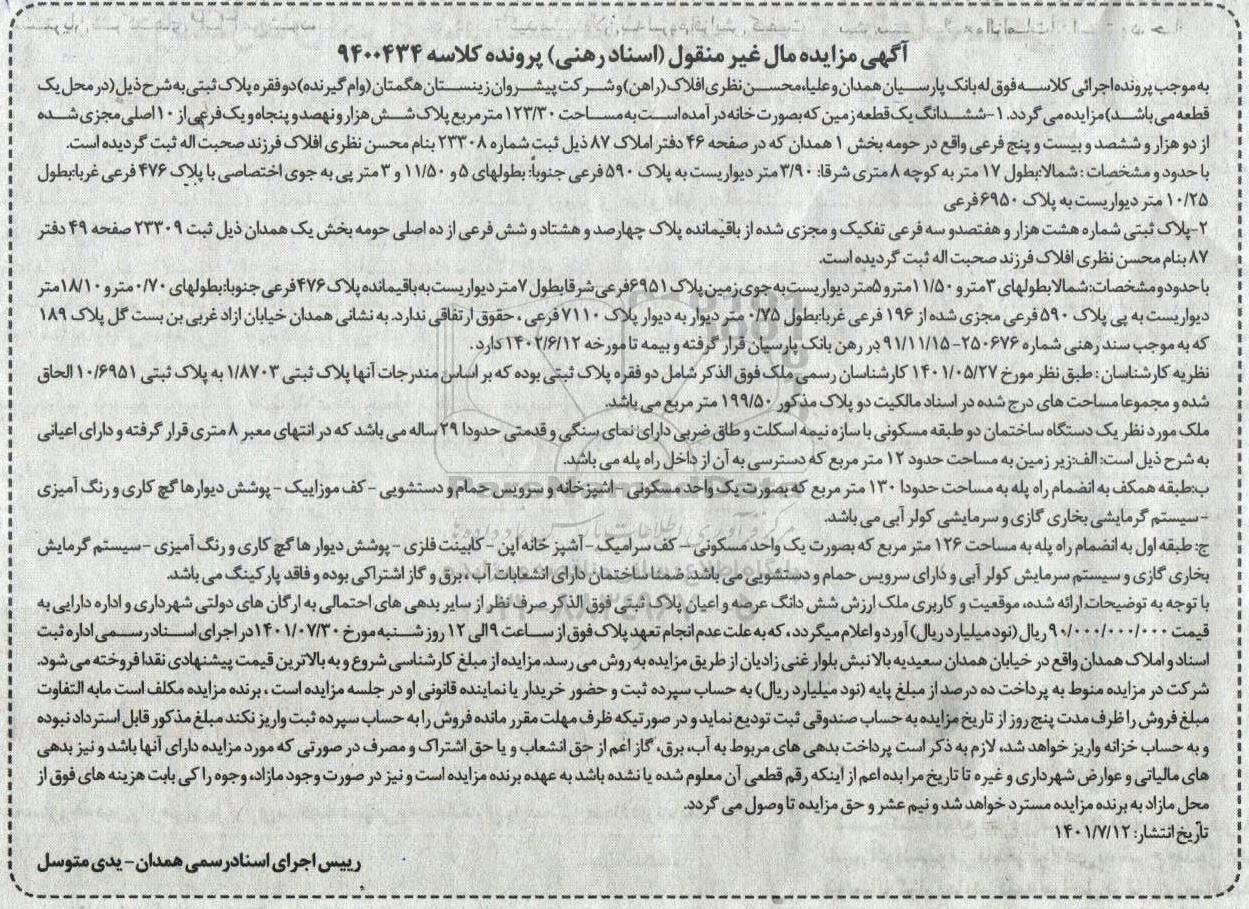 آگهی مزایده مال غیر منقول (اسناد رهنی) پرونده کلاسه ۹۴۰۰۴۳۴
به موجب پرونده اجرائی کلاسه فوق له بانک پارسیان همدان و علیه، محسن نظری افلاک (راهن) و شرکت پیشروان زیستان هگمتان (وام گیرنده) دو فقره پلاک ثبتی به شرح ذیل (در محل یک
قطعه می باشد) مزایده می گردد. ۱- ششدانگ یک قطعه زمین که بصورت خانه در آمده است به مساحت ۱۲۳/۳۰ متر مربع پلاک شش هزار و نهصد و پنجاه و یک فرعی از ۱۰ اصلی مجزی شده
از دو هزار و ششصد و بیست و پنج فرعی واقع در حومه بخش ۱ همدان که در صفحه ۴۶ دفتر املاک ۸۷ ذیل ثبت شماره ۲۳۳۰۸ بنام محسن نظری افلاک فرزند صحبت اله ثبت گردیده است.
با حدود و مشخصات : شمالا: بطول ۱۷ متر به کوچه ۸ متری شرقا: ۳/۹۰ متر دیواریست به پلاک ۵۹۰ فرعی جنوباً: بطولهای ۵ و ۱۱/۵۰ و ۳ متر پی به جوی اختصاصی با پلاک ۴۷۶ فرعی غربا: بطول
۱۰/۲۵ متر دیواریست به پلاک ۶۹۵۰ فرعی
۲- پلاک ثبتی شماره هشت هزار و هفتصدو سه فرعی تفکیک و مجزی شده از باقیمانده پلاک چهارصد و هشتاد و شش فرعی از ده اصلی حومه بخش یک همدان ذیل ثبت ۲۳۳۰۹ صفحه ۴۹ دفتر
۸۷ بنام محسن نظری افلاک فرزند صحبت اله ثبت گردیده است.
با حدود و مشخصات: شمالا بطولهای ۳ متر و ۱۱/۵۰ متر و ۵ متر دیواریست به جوی زمین پلاک ۶۹۵۱ فرعی شرقا بطول ۷ متر دیواریست به باقیمانده پلاک ۴۷۶ فرعی جنوبا: بطولهای ۰/۷۰ متر و ۱۸/۱۰ متر
دیواریست به پی پلاک ۵۹۰ فرعی مجزی شده از ۱۹۶ فرعی غربا: بطول ۰/۷۵ متر دیوار به دیوار پلاک ۷۱۱۰ فرعی ، حقوق ارتفاقی ندارد. به نشانی همدان خیابان ازاد غربی بن بست گل پلاک ۱۸۹
که به موجب سند رهنی شماره ۲۵۰۶۷۶- ۹۱/۱۱/۱۵ در رهن بانک پارسیان قرار گرفته و بیمه تا مورخه ۱۴۰۲/۶/۱۲ دارد.
نظریه کارشناسان : طبق نظر مورخ ۱۴۰۱/۰۵/۲۷ کارشناسان رسمی ملک فوق الذکر شامل دو فقره پلاک ثبتی بوده که بر اساس مندرجات آنها پلاک ثبتی ۱/۸۷۰۳ به پلاک ثبتی ۱۰/۶۹۵۱ الحاق
شده و مجموعا مساحت های درج شده در اسناد مالکیت دو پلاک مذکور ۱۹۹/۵۰ متر مربع می باشد.
ملک مورد نظر یک دستگاه ساختمان دو طبقه مسکونی با سازه نیمه اسکلت و طاق ضربی دارای نمای سنگی و قدمتی حدودا ۲۹ ساله می باشد که در انتهای معبر ۸ متری قرار گرفته و دارای اعیانی
به شرح ذیل است: الف: زیر زمین به مساحت حدود ۱۲ متر مربع که دسترسی به آن از داخل راه پله می باشد.
ب: طبقه همکف به انضمام راه پله به مساحت حدودا ۱۳۰ متر مربع که بصورت یک واحد مسکونی – اشپزخانه و سرویس حمام و دستشویی – کف موزاییک – پوشش دیوارها گچ کاری و رنگ آمیزی
– سیستم گرمایشی بخاری گازی و سرمایشی کولر آبی می باشد.
ج: طبقه اول به انضمام راه پله به مساحت ۱۲۶ متر مربع که بصورت یک واحد مسکونی – کف سرامیک – آشپز خانه اپن – کابینت فلزی – پوشش دیوار ها گچ کاری و رنگ آمیزی – سیستم گرمایش
بخاری گازی و سیستم سرمایش کولر آبی و دارای سرویس حمام و دستشویی می باشد. ضمنا ساختمان دارای انشعابات آب ، برق و گاز اشتراکی بوده و فاقد پارکینگ می باشد.
با توجه به توضیحات ارائه شده، موقعیت و کاربری ملک ارزش شش دانگ عرصه و اعیان پلاک ثبتی فوق الذکر صرف نظر از سایر بدهی های احتمالی به ارگان های دولتی شهرداری و اداره دارایی به
قیمت ۹۰/۰۰۰/۰۰۰/۰۰۰ ریال (نود میلیارد ریال) آورد و اعلام میگردد ، که به علت عدم انجام تعهد پلاک فوق از ساعت ۹ الی ۱۲ روز شنبه مورخ ۱۴۰۱/۰۷/۳۰ در اجرای اسناد رسمی اداره ثبت
اسناد و املاک همدان واقع در خیابان همدان سعیدیه بالا نبش بلوار غنی زادیان از طریق مزایده به روش می رسد. مزایده از مبلغ کارشناسی شروع و به بالاترین قیمت پیشنهادی نقدا فروخته می شود.
شرکت در مزایده منوط به پرداخت ده درصد از مبلغ پایه (نود میلیارد ریال) به حساب سپرده ثبت و حضور خریدار یا نماینده قانونی او در جلسه مزایده است ، برنده مزایده مکلف است مابه التفاوت
مبلغ فروش را ظرف مدت پنج روز از تاریخ مزایده به حساب صندوقی ثبت تودیع نماید و در صورتیکه ظرف مهلت مقرر مانده فروش را به حساب سپرده ثبت واریز نکند مبلغ مذکور قابل استرداد نبوده
و به حساب خزانه واریز خواهد شد، لازم به ذکر است پرداخت بدهی های مربوط به آب، برق، گاز اعم از حق انشعاب و یا حق اشتراک و مصرف در صورتی که مورد مزایده دارای آنها باشد و نیز بدهی
های مالیاتی و عوارض شهرداری و غیره تا تاریخ مرایده اعم از اینکه رقم قطعی آن معلوم شده یا نشده باشد به عهده برنده مزایده است و نیز در صورت وجود مازاد، وجوه راکی بابت هزینه های فوق از
محل مازاد به برنده مزایده مسترد خواهد شد و نیم عشر و حق مزایده تا وصول می گردد.
تاریخ انتشار: ۱۴۰۱/۷/۱۲
رییس اجرای اسناد رسمی همدان – یدی متوسل